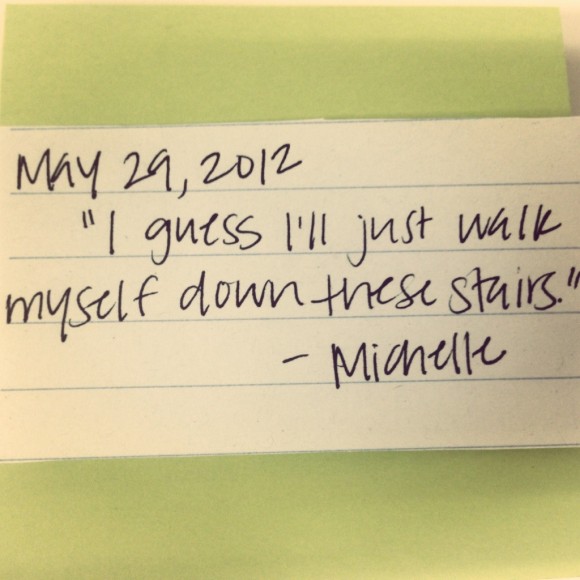 May 29, 2012
"I guess I'll just walk
myself down these stairs."
- Michelle